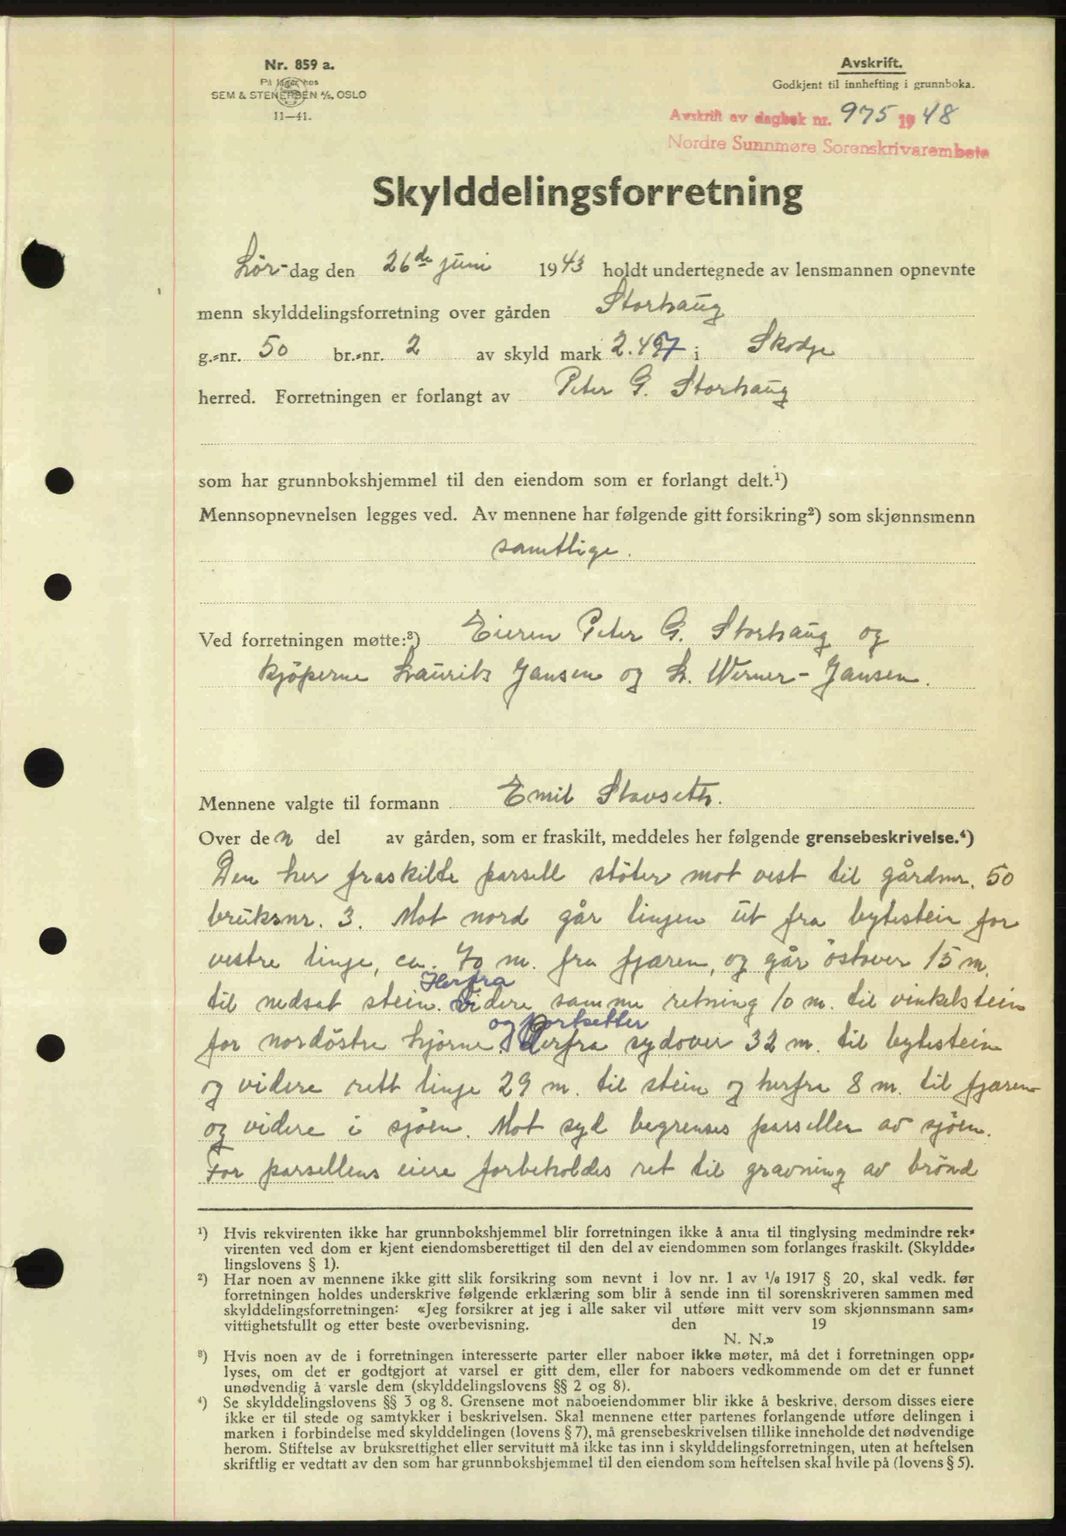 Nr. 859 a.
På lager hos
SEM & STENERSEN A/S, OSLO
11—41.
Avskrift.
Godkjent til innhefting i grunnboka.
Avskrift av dagbok nr. 975 1948
Nordre Sunnmøre Sorenskrivarembete
Skylddelingsforretning
Lör-dag den 26de juni 1943 holdt undertegnede av lensmannen opnevnte
menn skylddelingsforretning over gården Storhaug
g.-nr. 50 br.-nr. 2 av skyld mark 2.497 i Skodje
herred. Forretningen er forlangt av Peter G. Storhaug
som har grunnbokshjemmel til den eiendom som er forlangt delt.¹)
Mennsopnevnelsen legges ved. Av mennene har følgende gitt forsikring²) som skjønnsmenn
samtlige.
Ved forretningen møtte:³) Eieren Peter G. Storhaug og
kjöperne Laurits Jansen og L. Werner-Jansen.
Mennene valgte til formann Emil Stavseth.
Over den del av gården, som er fraskilt, meddeles her følgende grensebeskrivelse.⁴)
Den her fraskilte parsell stöter mot vest til gårdnr. 50
bruksnr. 3. Mot nord går linjen ut fra bytestein for
vestre linje, ca. 70 m. fra fjæren, og går östover 15 m.
Herfra
til nedsat stein. videre samme retning 10 m. til vinkelstein
og fortsetter
for nordöstre hjörne. Derfra sydover 32 m. til bytestein
og videre rett linje 29 m. til stein og herfra 8 m. til fjæren
og videre i sjöen. Mot syd begrenses parsellen av sjöen.
For parsellens eiere forbeholdes ret til gravning av brönd
¹) Hvis rekvirenten ikke har grunnbokshjemmel blir forretningen ikke å anta til tinglysing medmindre rek-
virenten ved dom er kjent eiendomsberettiget til den del av eiendommen som forlanges fraskilt. (Skyldde-
lingslovens § 1).
²) Har noen av mennene ikke gitt slik forsikring som nevnt i lov nr. 1 av 1/6 1917 § 20, skal vedk. før
forretningen holdes underskrive følgende erklæring som blir å sende inn til sorenskriveren sammen med
skylddelingsforretningen: «Jeg forsikrer at jeg i alle saker vil utføre mitt verv som skjønnsmann sam-
vittighetsfullt og etter beste overbevisning. den 19
N. N.»
³) Hvis noen av de i forretningen interesserte parter eller naboer ikke møter, må det i forretningen opp-
lyses, om det er godtgjort at varsel er gitt dem, eller for naboers vedkommende om det er funnet
unødvendig å varsle dem (skylddelingslovens §§ 2 og 8).
⁴) Se skylddelingslovens §§ 3 og 8. Grensene mot naboeiendommer blir ikke å beskrive, dersom disses eiere
ikke er til stede og samtykker i beskrivelsen. Skal mennene etter partenes forlangende utføre delingen i
marken i forbindelse med skylddelingen (lovens § 7), må grensebeskrivelsen tillike inneholde det nødvendige
herom. Stiftelse av bruksrettighet eller servitutt må ikke tas inn i skylddelingsforretningen, uten at heftelsen
skriftlig er vedtatt av den som har grunnbokshjemmel til den eiendom som heftelsen skal hvile på (lovens § 5).